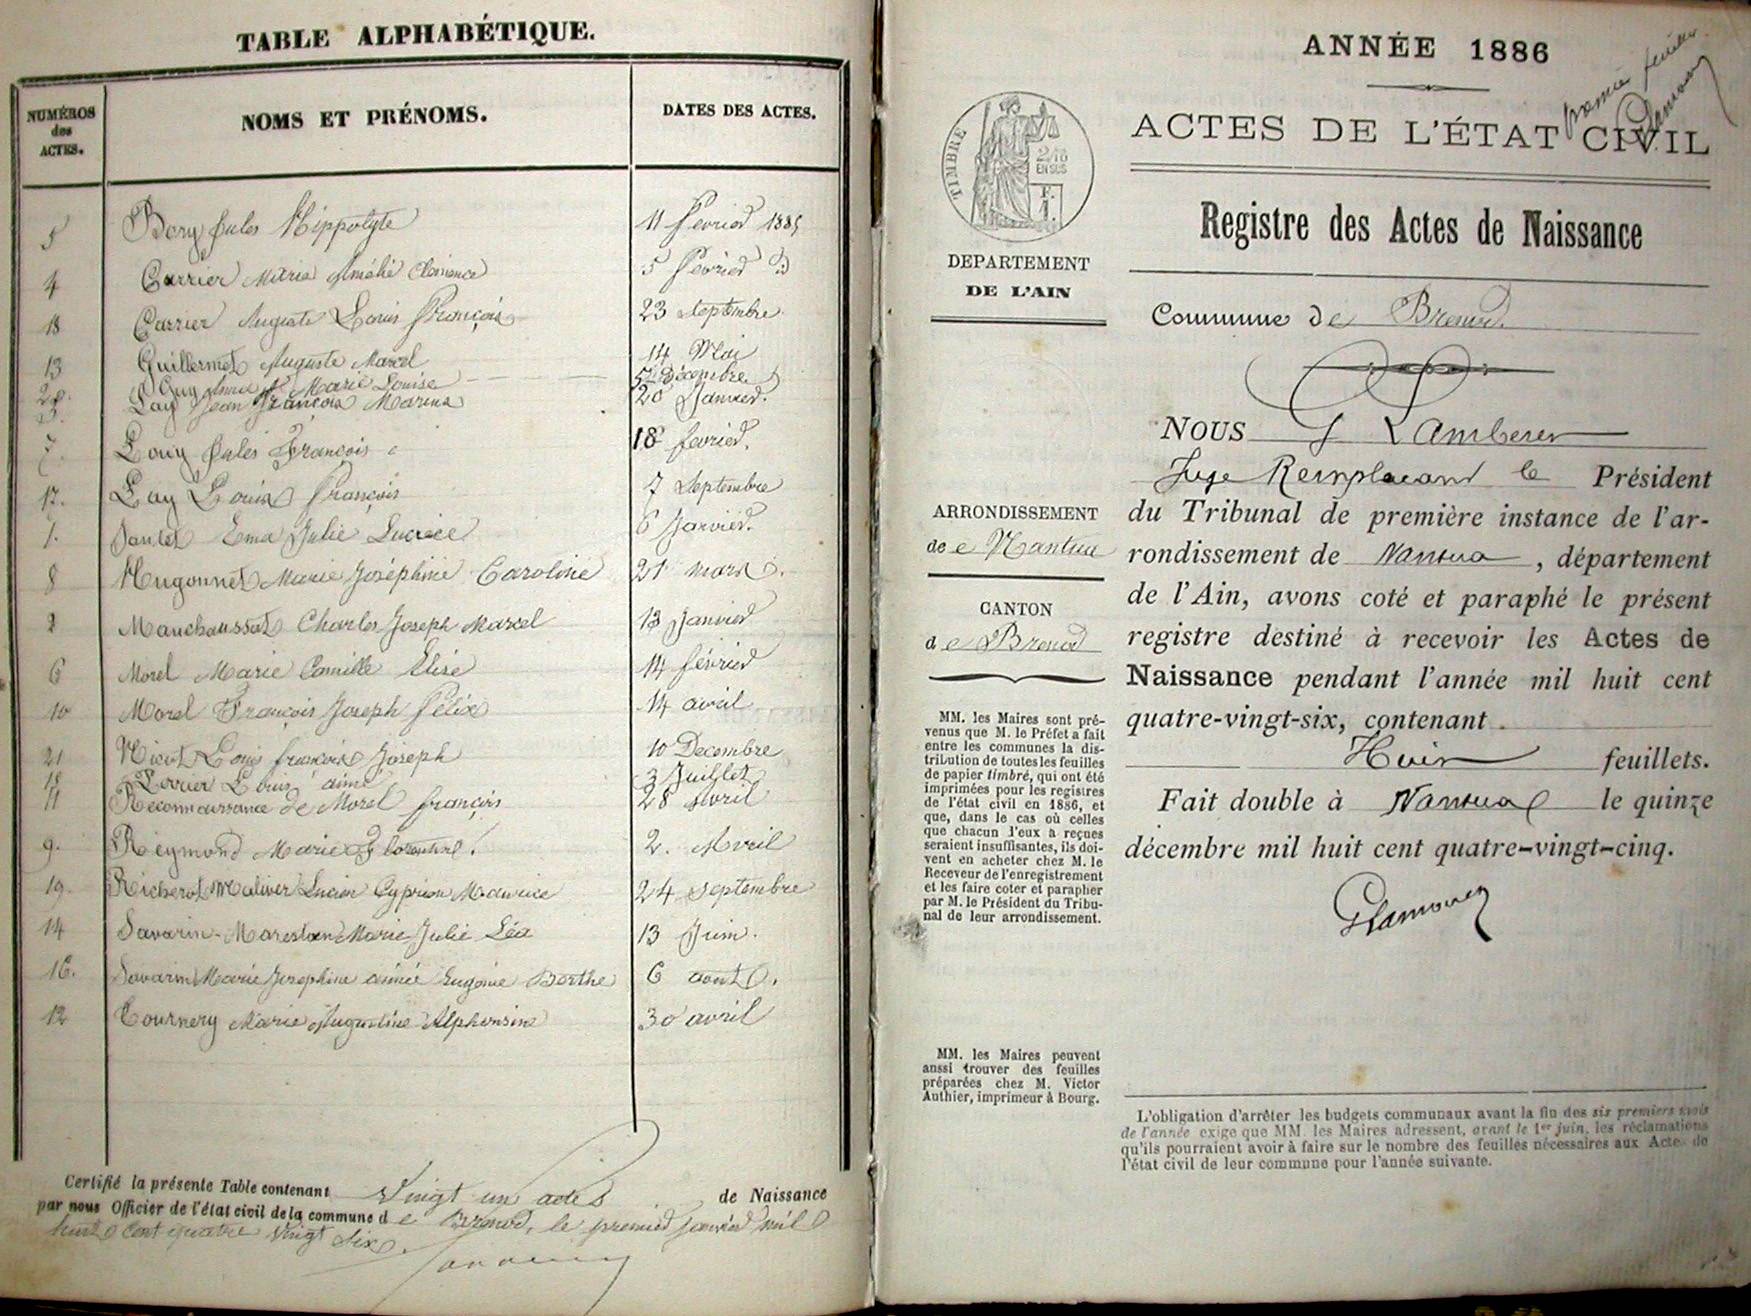 TABLE ALPHABÉTIQUE.
NUMÉROS
des
ACTES.
NOMS ET PRÉNOMS.
DATES DES ACTES.
5 Bory Jules Hippolyte 11 fevrier 1885
4 Carrier Marie Amélie Clemence 5 fevrier
18 Carrier Auguste Louis François 23 septembre
13 Guillermet Auguste Marcel 14 Mai
20. Guy Marie Louise 5 Décembre
3. Lay Jean François Marius 20 Janvier.
7. Louy Jules François 18 fevrier.
17. Lay Louis François 7 septembre
1. Jantet Ema Julie Lucrèce 6 Janvier.
8 Hugonnet Marie Joséphine Caroline 21 mars
2 Manchaussat Charles Joseph Marcel 13 Janvier
6 Morel Marie Camille Elise 14 février
10 Morel François Joseph Félix 14 avril
21 Nicot Louis françois Joseph 10 Decembre
15 Perrier Louis aimé 3 Juillet
11 Reconnaissance de Morel françois 28 Avril
9. Reymond Marie Florentine. 2. Avril
19. Richerot Lucien Cyprien Maurice 24 septembre
14 Savarin-Marestan Marie Julie Léa 13 Juin.
16. Savarin Marie Josephine aimée Eugénie Berthe 6 aout.
12 Tournery Marie Augustine Alphonsine 30 avril
Certifié la présente Table contenant Vingt un actes de Naissance
par nous Officier de l'état civil de la commune de Brenod, le premier janvier mil
huit cent quatre vingt six.
ANNÉE 1886
premier feuillet
ACTES DE L'ÉTAT CIVIL
TIMBRE
2/10
EN SUS
F.
1.
Registre des Actes de Naissance
DEPARTEMENT
DE L'AIN
Commune de Brenod.
NOUS G Lamberet
Juge Remplaçant le Président
du Tribunal de première instance de l'ar-
rondissement de Nantua, département
de l'Ain, avons coté et paraphé le présent
registre destiné à recevoir les Actes de
Naissance pendant l'année mil huit cent
quatre-vingt-six, contenant
Huit feuillets.
Fait double à Nantua le quinze
décembre mil huit cent quatre-vingt-cinq.
ARRONDISSEMENT
de Nantua
CANTON
de Brenod
MM. les Maires sont pré-
venus que M. le Préfet a fait
entre les communes la dis-
tribution de toutes les feuilles
de papier timbré, qui ont été
imprimées pour les registres
de l'état civil en 1886, et
que, dans le cas où celles
que chacun d'eux a reçues
seraient insuffisantes, ils doi-
vent en acheter chez M. le
Receveur de l'enregistrement
et les faire coter et parapher
par M. le Président du Tribu-
nal de leur arrondissement.
MM. les Maires peuvent
aussi trouver des feuilles
préparées chez M. Victor
Authier, imprimeur à Bourg.
L'obligation d'arrêter les budgets communaux avant la fin des six premiers mois
de l'année exige que MM. les Maires adressent, avant le 1er juin, les réclamations
qu'ils pourraient avoir à faire sur le nombre des feuilles nécessaires aux Actes de
l'état civil de leur commune pour l'année suivante.